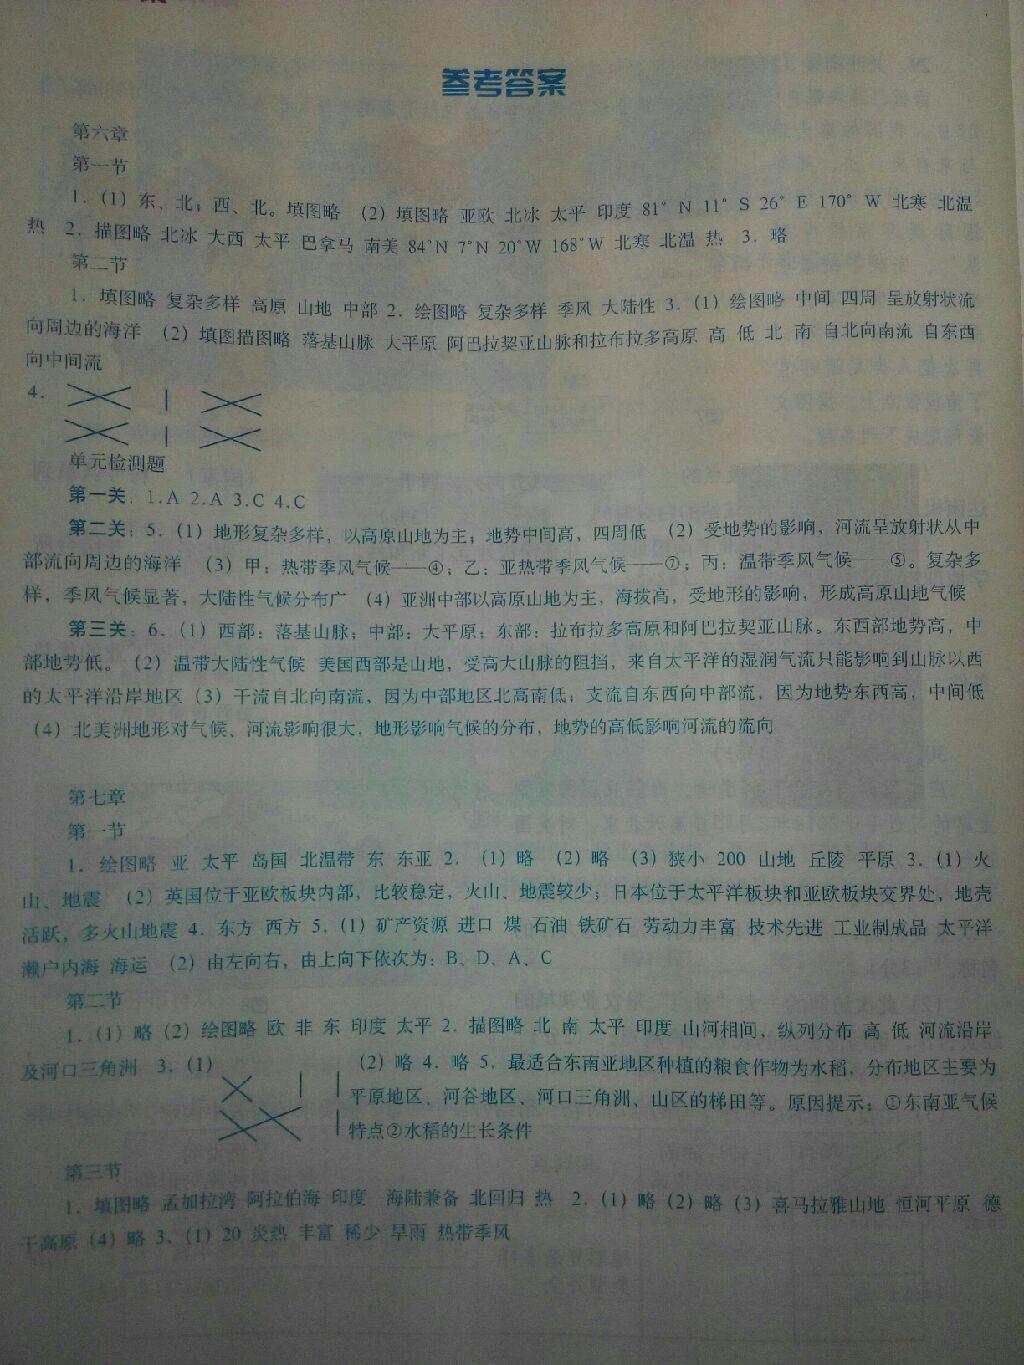 参考答案
第六章
第一节
1．（1）东、北；西、北。填图略 （2）填图略 亚欧 北冰 太平 印度 81°N 11°S 26°E 170°W 北寒 北温
热 2．描图略 北冰 大西 太平 巴拿马 南美 84°N 7°N 20°W 168°W 北寒 北温 热 3．略
第二节
1．填图略 复杂多样 高原 山地 中部 2．绘图略 复杂多样 季风 大陆性 3．（1）绘图略 中间 四周 呈放射状流
向周边的海洋 （2）填图描图略 落基山脉 大平原 阿巴拉契亚山脉和拉布拉多高原 高 低 北 南 自北向南流 自东西
向中间流
4．
单元检测题
第一关：1.A 2.A 3.C 4.C
第二关：5．（1）地形复杂多样，以高原山地为主；地势中间高，四周低 （2）受地势的影响，河流呈放射状从中
部流向周边的海洋 （3）甲：热带季风气候——④；乙：亚热带季风气候——⑦；丙：温带季风气候——⑤。复杂多
样，季风气候显著，大陆性气候分布广 （4）亚洲中部以高原山地为主，海拔高，受地形的影响，形成高原山地气候
第三关：6．（1）西部：落基山脉；中部：大平原；东部：拉布拉多高原和阿巴拉契亚山脉。东西部地势高，中
部地势低。（2）温带大陆性气候 美国西部是山地，受高大山脉的阻挡，来自太平洋的湿润气流只能影响到山脉以西
的太平洋沿岸地区（3）干流自北向南流，因为中部地区北高南低；支流自东西向中部流，因为地势东西高，中间低
（4）北美洲地形对气候、河流影响很大，地形影响气候的分布，地势的高低影响河流的流向
第七章
第一节
1．绘图略 亚 太平 岛国 北温带 东 东亚 2．（1）略 （2）略 （3）狭小 200 山地 丘陵 平原 3．（1）火
山、地震 （2）英国位于亚欧板块内部，比较稳定，火山、地震较少；日本位于太平洋板块和亚欧板块交界处，地壳
活跃，多火山地震 4．东方 西方 5．（1）矿产资源 进口 煤 石油 铁矿石 劳动力丰富 技术先进 工业制成品 太平洋
濑户内海 海运 （2）由左向右，由上向下依次为：B、D、A、C
第二节
1．（1）略（2）绘图略 欧 非 东 印度 太平 2．描图略 北 南 太平 印度 山河相间，纵列分布 高 低 河流沿岸
及河口三角洲 3．（1） （2）略 4．略 5．最适合东南亚地区种植的粮食作物为水稻，分布地区主要为
平原地区、河谷地区、河口三角洲、山区的梯田等。原因提示：①东南亚气候
特点②水稻的生长条件
第三节
1．填图略 孟加拉湾 阿拉伯海 印度 海陆兼备 北回归 热 2．（1）略（2）略（3）喜马拉雅山地 恒河平原 德
干高原（4）略 3．（1）20 炎热 丰富 稀少 旱雨 热带季风